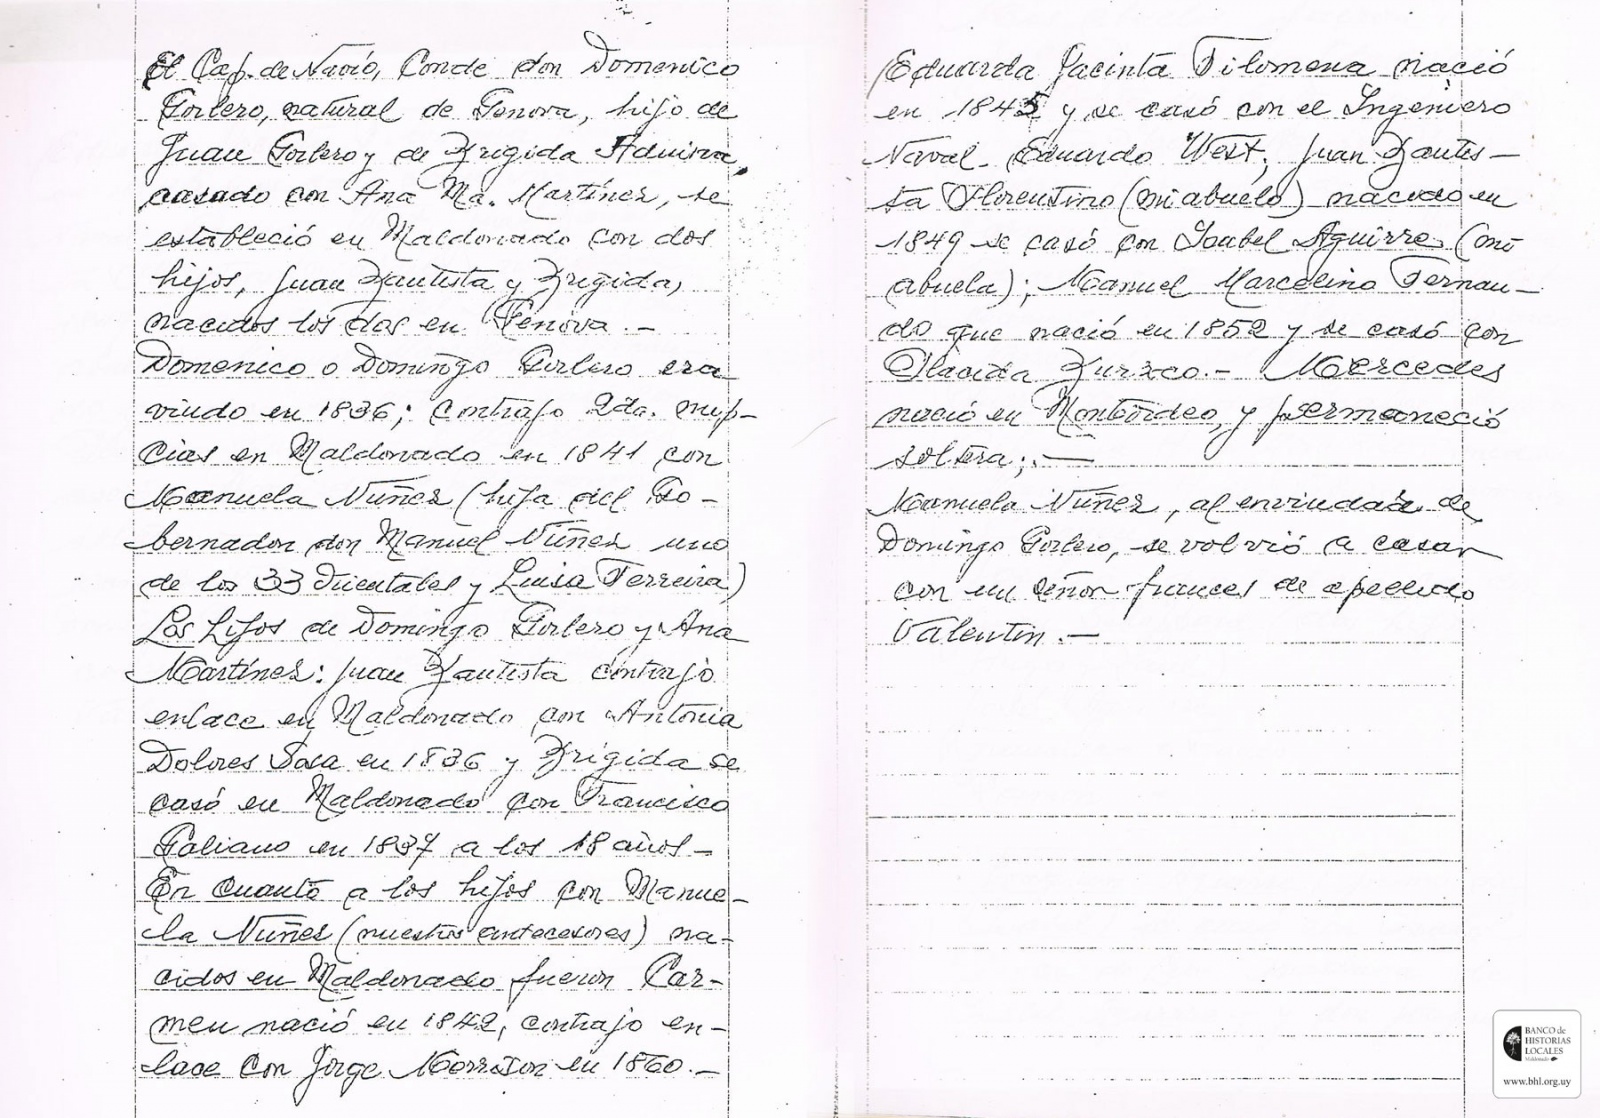 El Cap. de Navío, Conde don Domenico
Gorlero, natural de Genova, hijo de
Juan Gorlero y de Brigida
casado con Ana Ma. Martínez, se
estableció en Maldonado con dos
hijos, Juan Bautista y Brigida,
nacidos los dos en Genova.-
Domenico o Domingo Gorlero era
viudo en 1836; contrajo 2da. nup-
cias en Maldonado en 1841 con
Manuela Nuñez (hija del Go-
bernador don Manuel Nuñez uno
de los 33 Orientales y Luisa Ferreira)
Los hijos de Domingo Gorlero y Ana
Martínez: Juan Bautista contrajo
enlace en Maldonado con Antonia
Dolores Sosa en 1836 y Brigida se
casó en Maldonado con Francisco
Galiano en 1837 a los 18 años_
En cuanto a los hijos con Manue-
la Nuñez (nuestros antecesores) na-
cidos en Maldonado fueron Car-
men nació en 1842, contrajo en-
lace con Jorge Morrison en 1860.-
Eduarda Jacinta Filomena nació
en 1845 y se casó con el Ingeniero
Naval Eduardo West; Juan Bautis-
ta Florentino (mi abuelo) nacido en
1849 se casó con Isabel Aguirre (mi
abuela); Manuel Marcelino Fernan-
do que nació en 1852 y se casó con
Placida
Mercedes
nació en Montevideo, y permaneció
soltera;.-
Manuela Nuñez, al enviudar de
Domingo Gorlero, se volvió a casar
con un señor frances de apellido
Valentin.-
BANCO de
HISTORIAS
LOCALES
Maldonado
www.bhl.org.uy